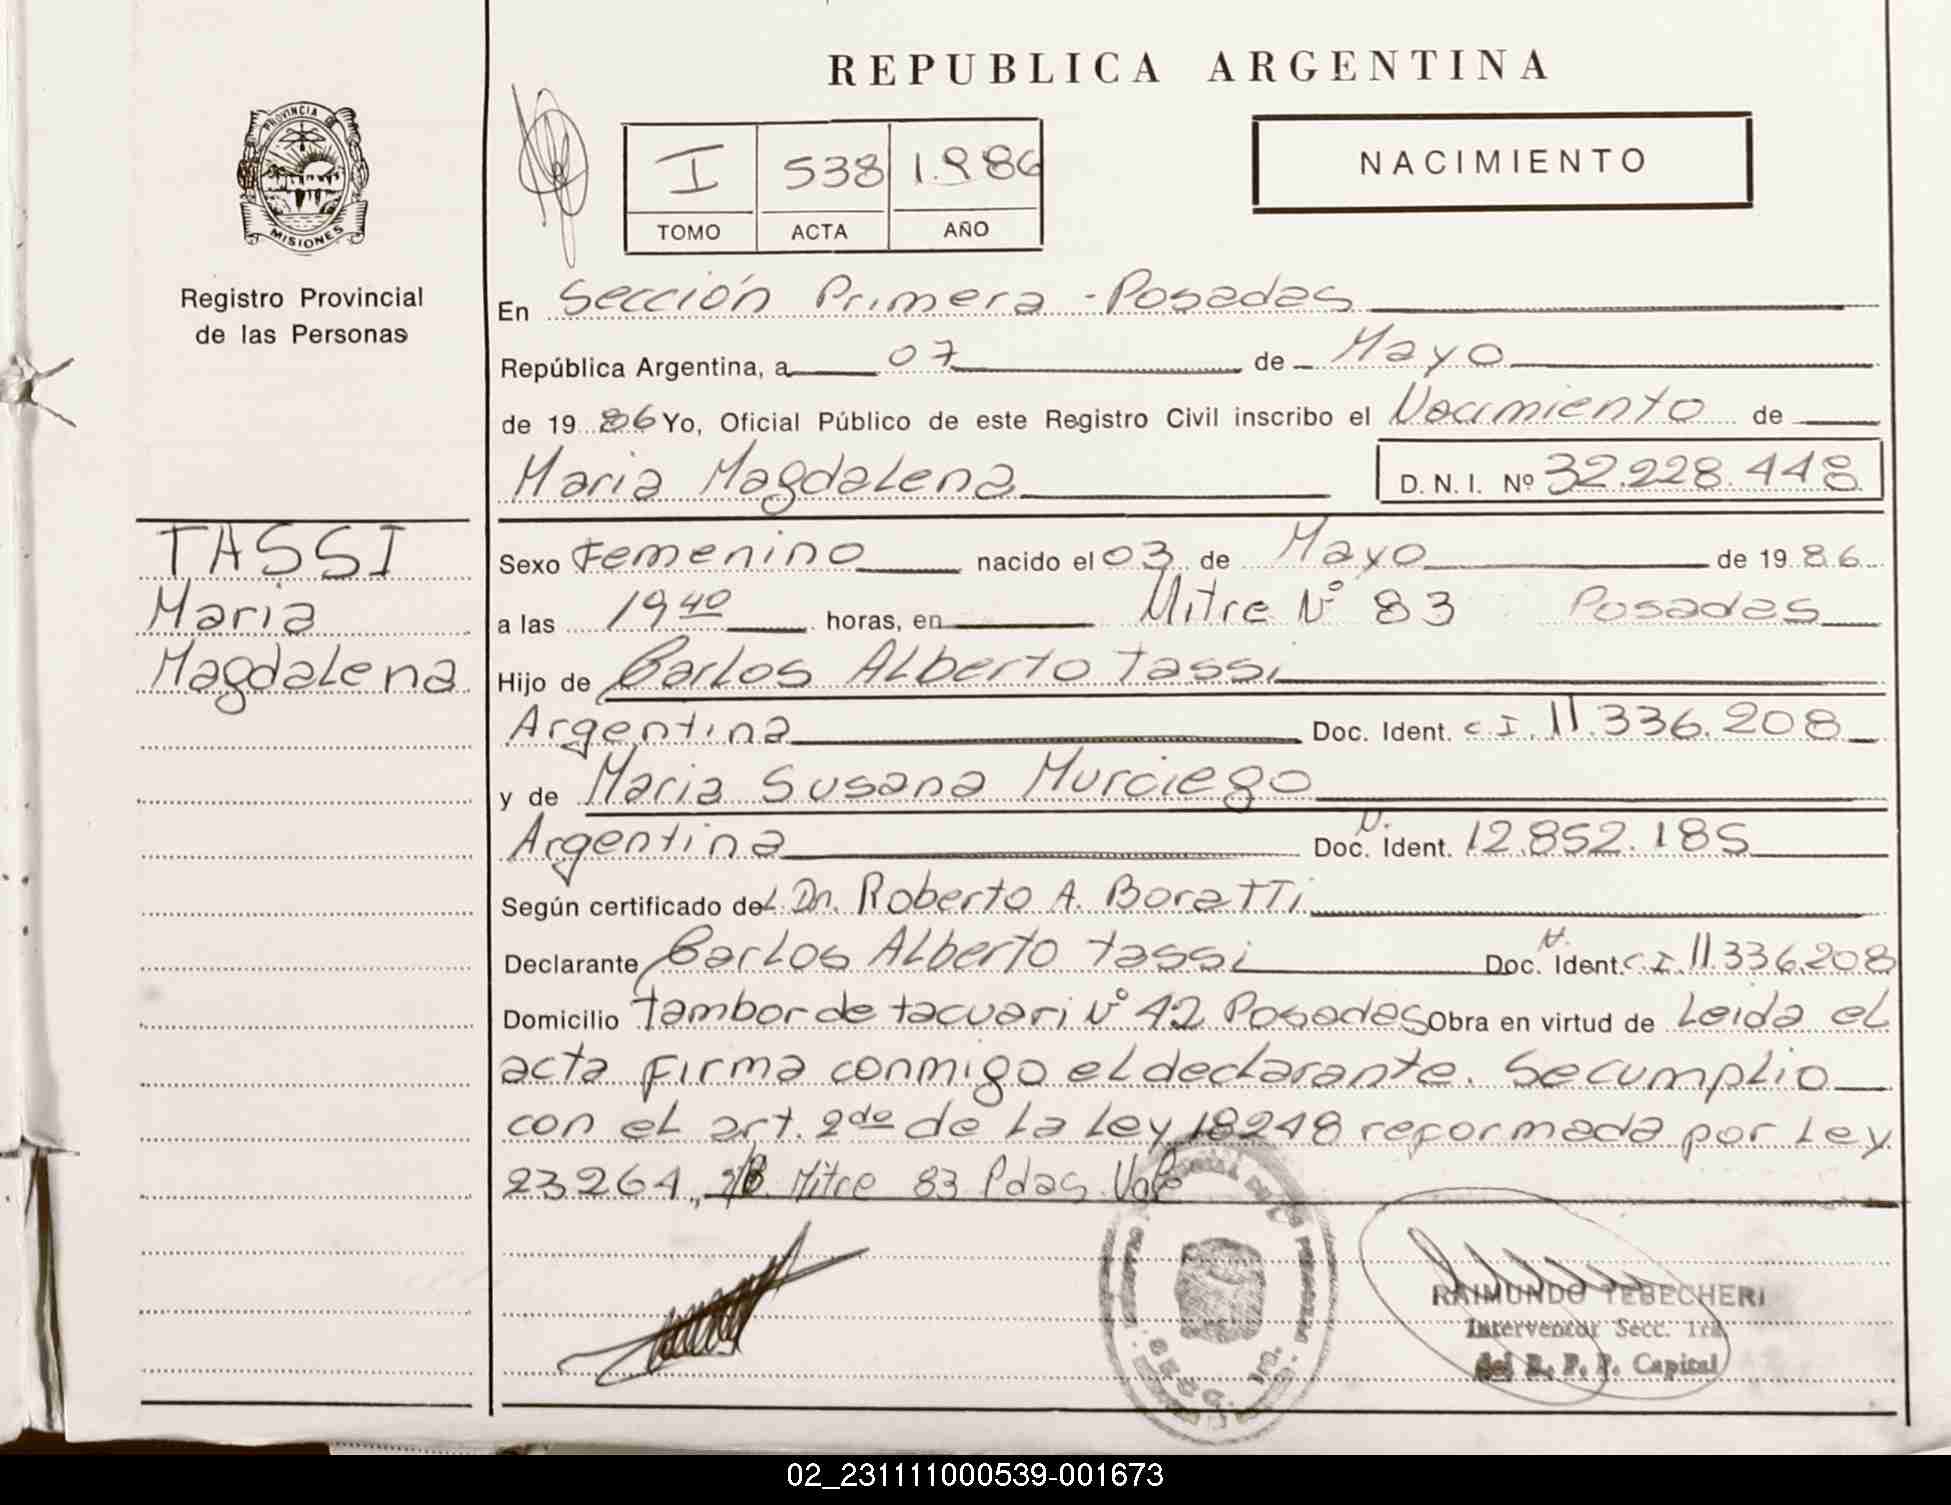 REPUBLICA ARGENTINA
PROVINCIA DE
MISIONES
Registro Provincial
de las Personas
I 538 1.986
TOMO ACTA AÑO
NACIMIENTO
En Sección Primera - Posadas
República Argentina, a 07 de Mayo
de 19 86 Yo, Oficial Público de este Registro Civil inscribo el Nacimiento de
Maria Magdalena D. N. I. Nº 32.228.448
TASSI
Maria
Magdalena
Sexo Femenino nacido el 03 de Mayo de 19 86
a las 19 40 horas, en Mitre Nº 83 Posadas
Hijo de Carlos Alberto Tassi
Argentina Doc. Ident. C.I. 11.336.208
y de Maria Susana Murciego
Argentina Doc. N. Ident. 12.852.185
Según certificado del Dr. Roberto A. Boratti
Declarante Carlos Alberto Tassi Doc. N. Ident. C.I. 11.336.208
Domicilio Tambor de tacuari Nº 42 Posadas Obra en virtud de Leida el
acta firma conmigo el declarante. Se cumplio
con el art. 2do de la Ley 18248 reformada por Ley
23264, Mitre 83 Pdas. Vale
RAIMUNDO TEBECHERI
Interventor Secc. 1ra
del R. P. P. Capital
02_231111000539-001673